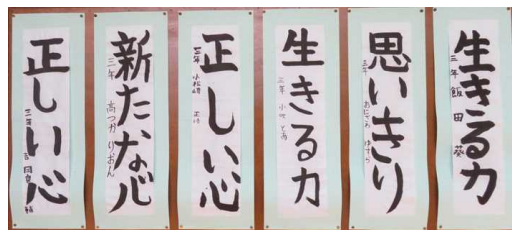 生きる力
三年 飯田 葵
思いきり
三年
生きる力
三年
正しい心
新たな心
三年 高つか りおん
正しい心
三年